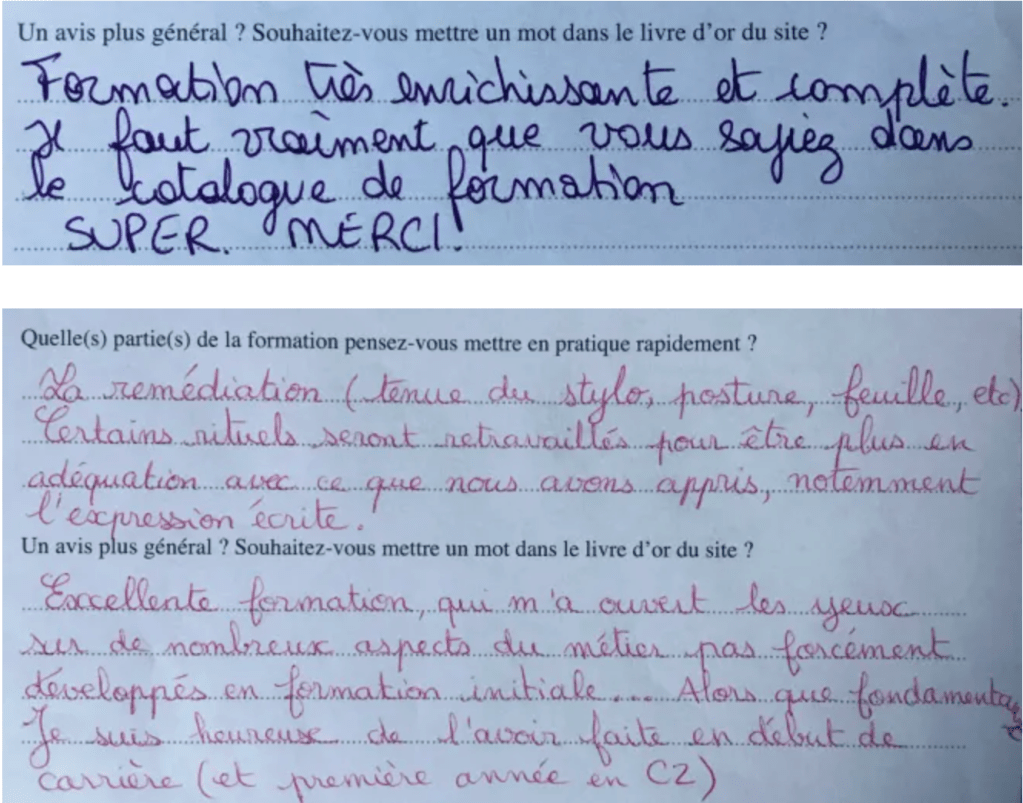 Un avis plus général ? Souhaitez-vous mettre un mot dans le livre d'or du site ?
Formation très enrichissante et complète.
Il faut vraiment que vous soyiez dans
le catalogue de formation
SUPER. MERCI!
Quelle(s) partie(s) de la formation pensez-vous mettre en pratique rapidement ?
La remédiation (tenue du stylo, posture, feuille, etc)
Certains rituels seront retravaillés pour être plus en
adéquation avec ce que nous avons appris, notemment
l'expression écrite.
Un avis plus général ? Souhaitez-vous mettre un mot dans le livre d'or du site ?
Excellente formation, qui m'a ouvert les yeux
sur de nombreux aspects du métier pas forcément
développés en formation initiale.... Alors que fondamentaux
Je suis heureuse de l'avoir faite en début de
carrière (et première année en C2)